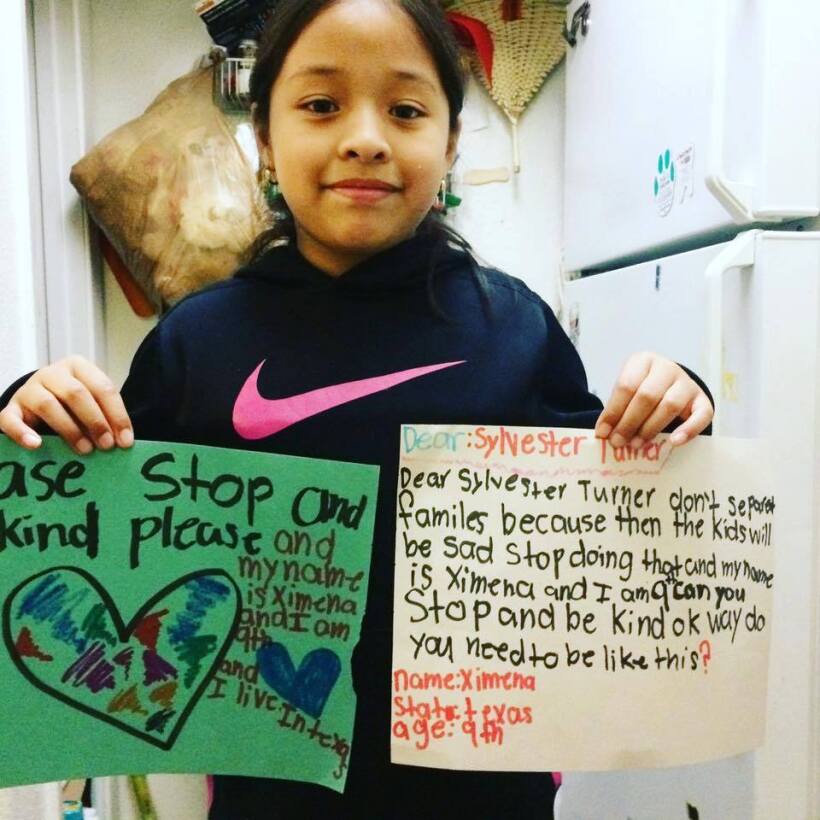 ase Stop and
kind please and
my name
is Ximena
and I am
9th
and
I live: In texas
Dear: Sylvester Turner
Dear Sylvester Turner don't separet
familes because then the kids will
be sad Stop doing that and my name
is Ximena and I am 9 can you
Stop and be kind ok way do
you need to be like this?
name: Ximena
State: texas
age: 9th